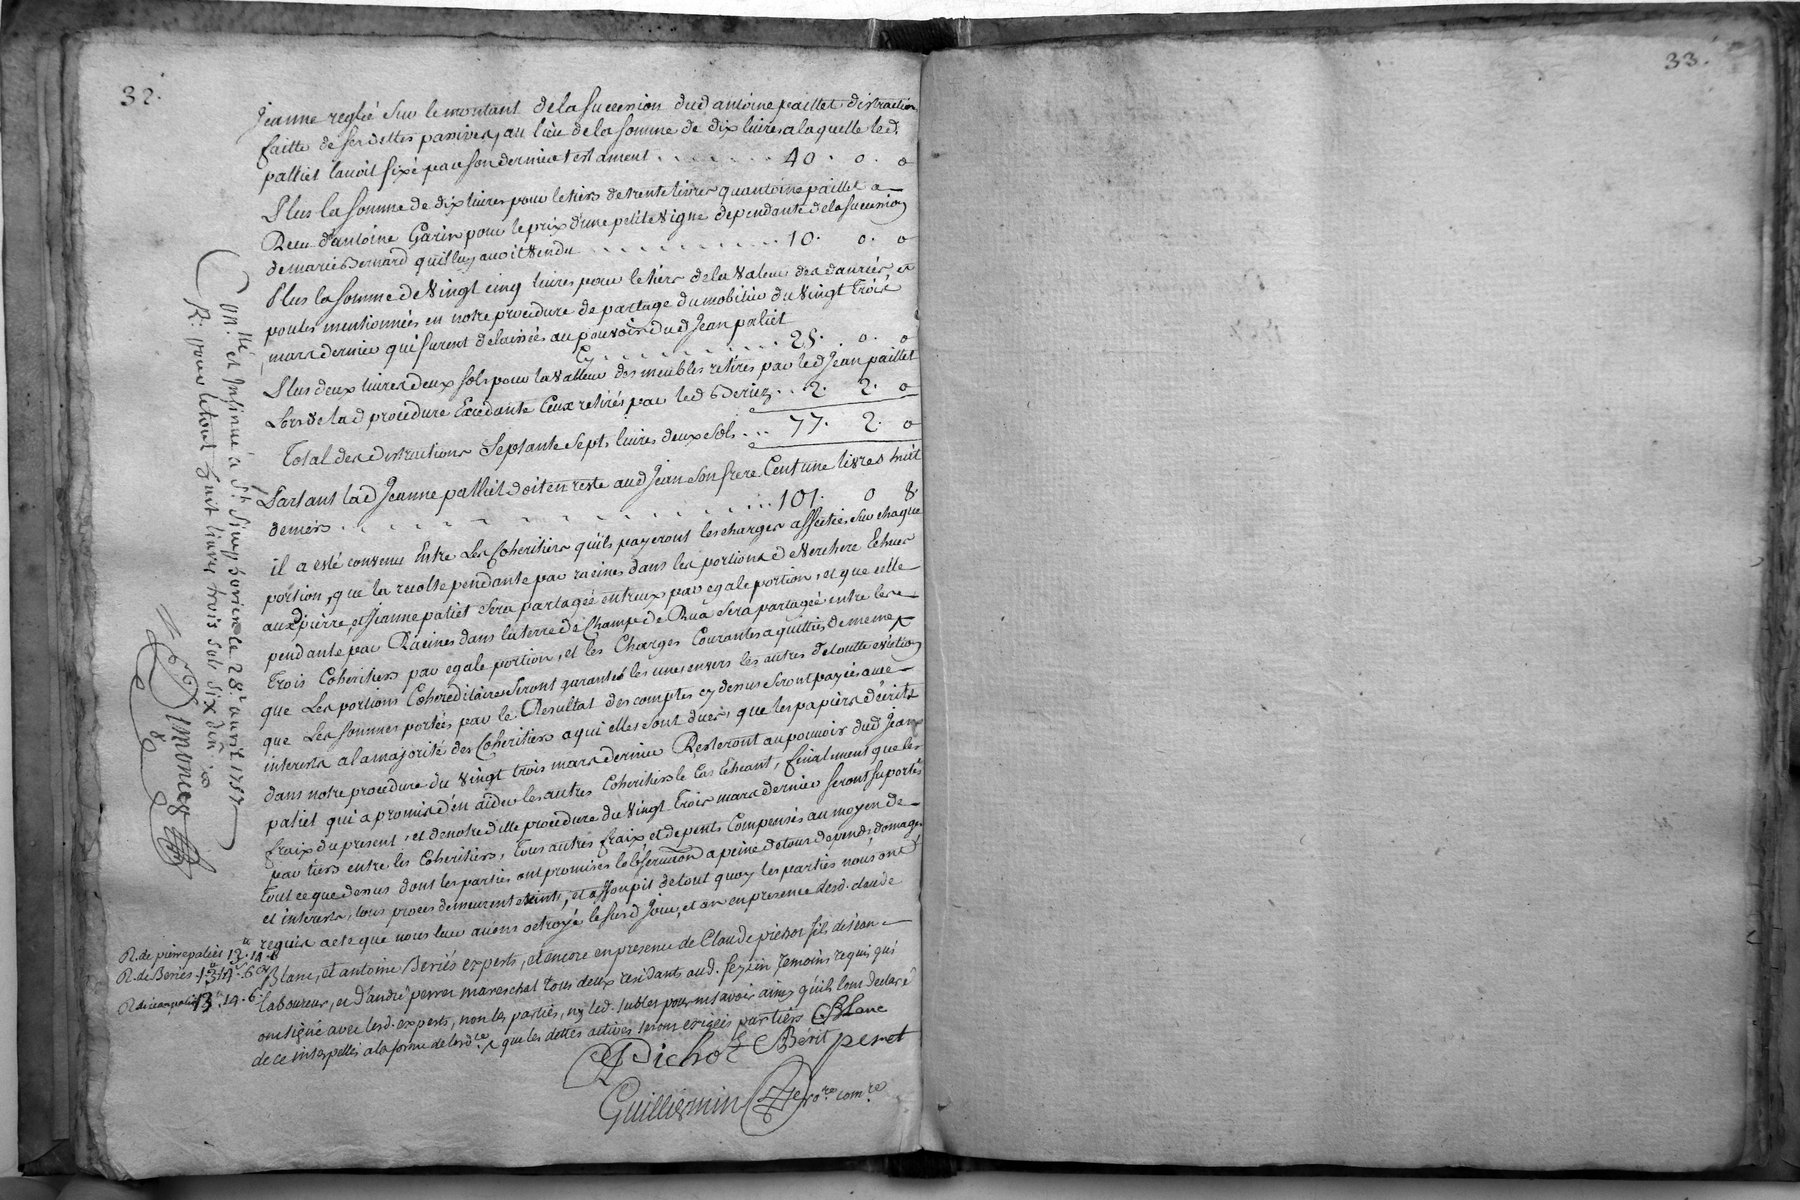 32.
Jeanne reglié Sur le montant de la Succession dud antoine paillet distraction
faitte de ses dettes passives, au lieu de la somme de dix livres a laquelle led.
palliet l'avoit fixé par son dernier testament . . . . . . . . 40. 0. 0
Plus la somme de dix livres pour le tiers de trente livres qu antoine paillet a
Receu d'antoine Garin pour le prix d'une petite vigne dependante de la succession
de marie Bernard qu'il luy avoit vendu . . . . . . . . . . 10. 0. 0
Plus la somme de vingt cinq livres pour le tiers de la valeur des danrées, et
poules mentionnées en notre procedure de partage du mobilier du vingt trois
mars dernier qui furent delaissées au pouvoir dud Jean paliet
Cy . . . . . . . . . . . . . 25. 0. 0
Plus deux livres deux sols pour la valleur des meubles retirés par led Jean paillet
Lors de lad procedure Excedante Ceux retirés par led Beriez . . 2. 2. 0
Total des distractions Septante Sept livres deux sols . . . 77. 2. 0
Partant lad Jeanne palliet doit en reste aud Jean son frere Cent une livres huit
deniers . . . . . . . . . . . . . . . . . . 101. 0 8.
il a esté convenu Entre Les Coheritiers qu'ils payeront les charges affectées sur chaque
portion, que la recolte pendante par racines dans les portions de verchere Echues
auxd pierre, et Jeanne paliet sera partagée entreux par egale portion, et que celle
pendante par Racines dans la terre de Champ de Rua sera partagée entre les
Trois Coheritiers par egale portion, et les Charges Courantes aquittées de meme,
que Les portions Cohereditaires seront garanties les unes envers les autres de toutte eviction
que Les sommes portées par le Resultat des comptes cy dessus seront payées avec
interests a la majorité des Coheritiers a qui elles sont dues, que les papiers décrits
dans notre procedure du vingt trois mars dernier Resteront au pouvoir dud Jean
paliet qui a promis d'en aider les autres Coheritiers le Cas Echeant, finalement que les
fraix du present, et de notre ditte procedure du vingt Trois mars dernier seront suportés
par tiers entre les Coheritiers, tous autres fraix et depents Compensés au moyen de
Tout ce que dessus dont les parties ont promises l'observation a peine de tous depends, domages
et interests, tous proces demeurent eteints, et assoupit de tout quoy les parties nous ont
requis acte que nous leur avons octroyé les susd Jour, et an en presence desd. claude
Blanc, et antoine Beriés experts, et encore en presence de Claude pichot fils de jean
laboureur, et d'andré perret mareschal tous deux residants aud. feysin temoins requis qui
ont signé avec lesd. experts, non les parties, ny led. pour ne sçavoir ainsy qu'ils l'ont declaré
de ce interpellés a la forme de lord.ce que les dettes actives seront exigées par tiers Blanc
Pichot Bérit perret
Guillermin Com.re
Con.lé et Insinué à St. Simphorien le 28e avril 1757
R: pour le tout huit livres trois sols six den.
Simonet
R. de pierre paliet 13. 14. 6
R. de Beriés 13. 14. 6
R. de jean paliet 13. 14. 6.
33.